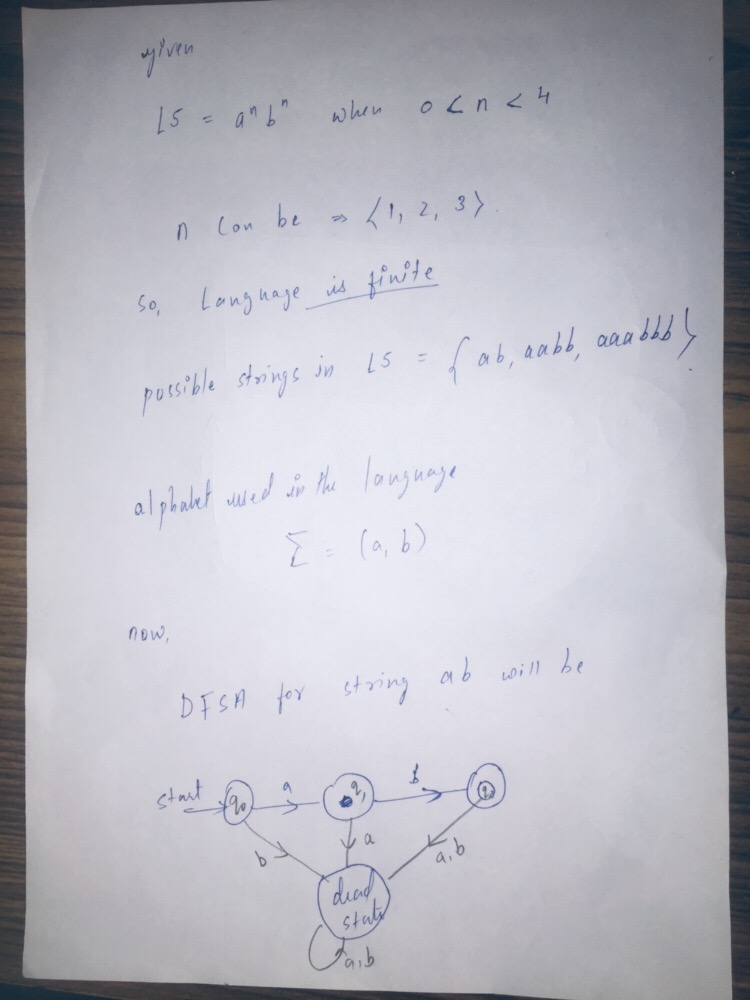 given
L5 = aⁿbⁿ when 0 < n < 4
n can be ⇒ {1, 2, 3}.
so, Language is finite
possible strings in L5 = { ab, aabb, aaabbb}
alphabet used in the language
Σ = (a, b)
now,
DFSA for string ab will be
start q₀ a q₁ b
b a a,b
dead
state
a,b